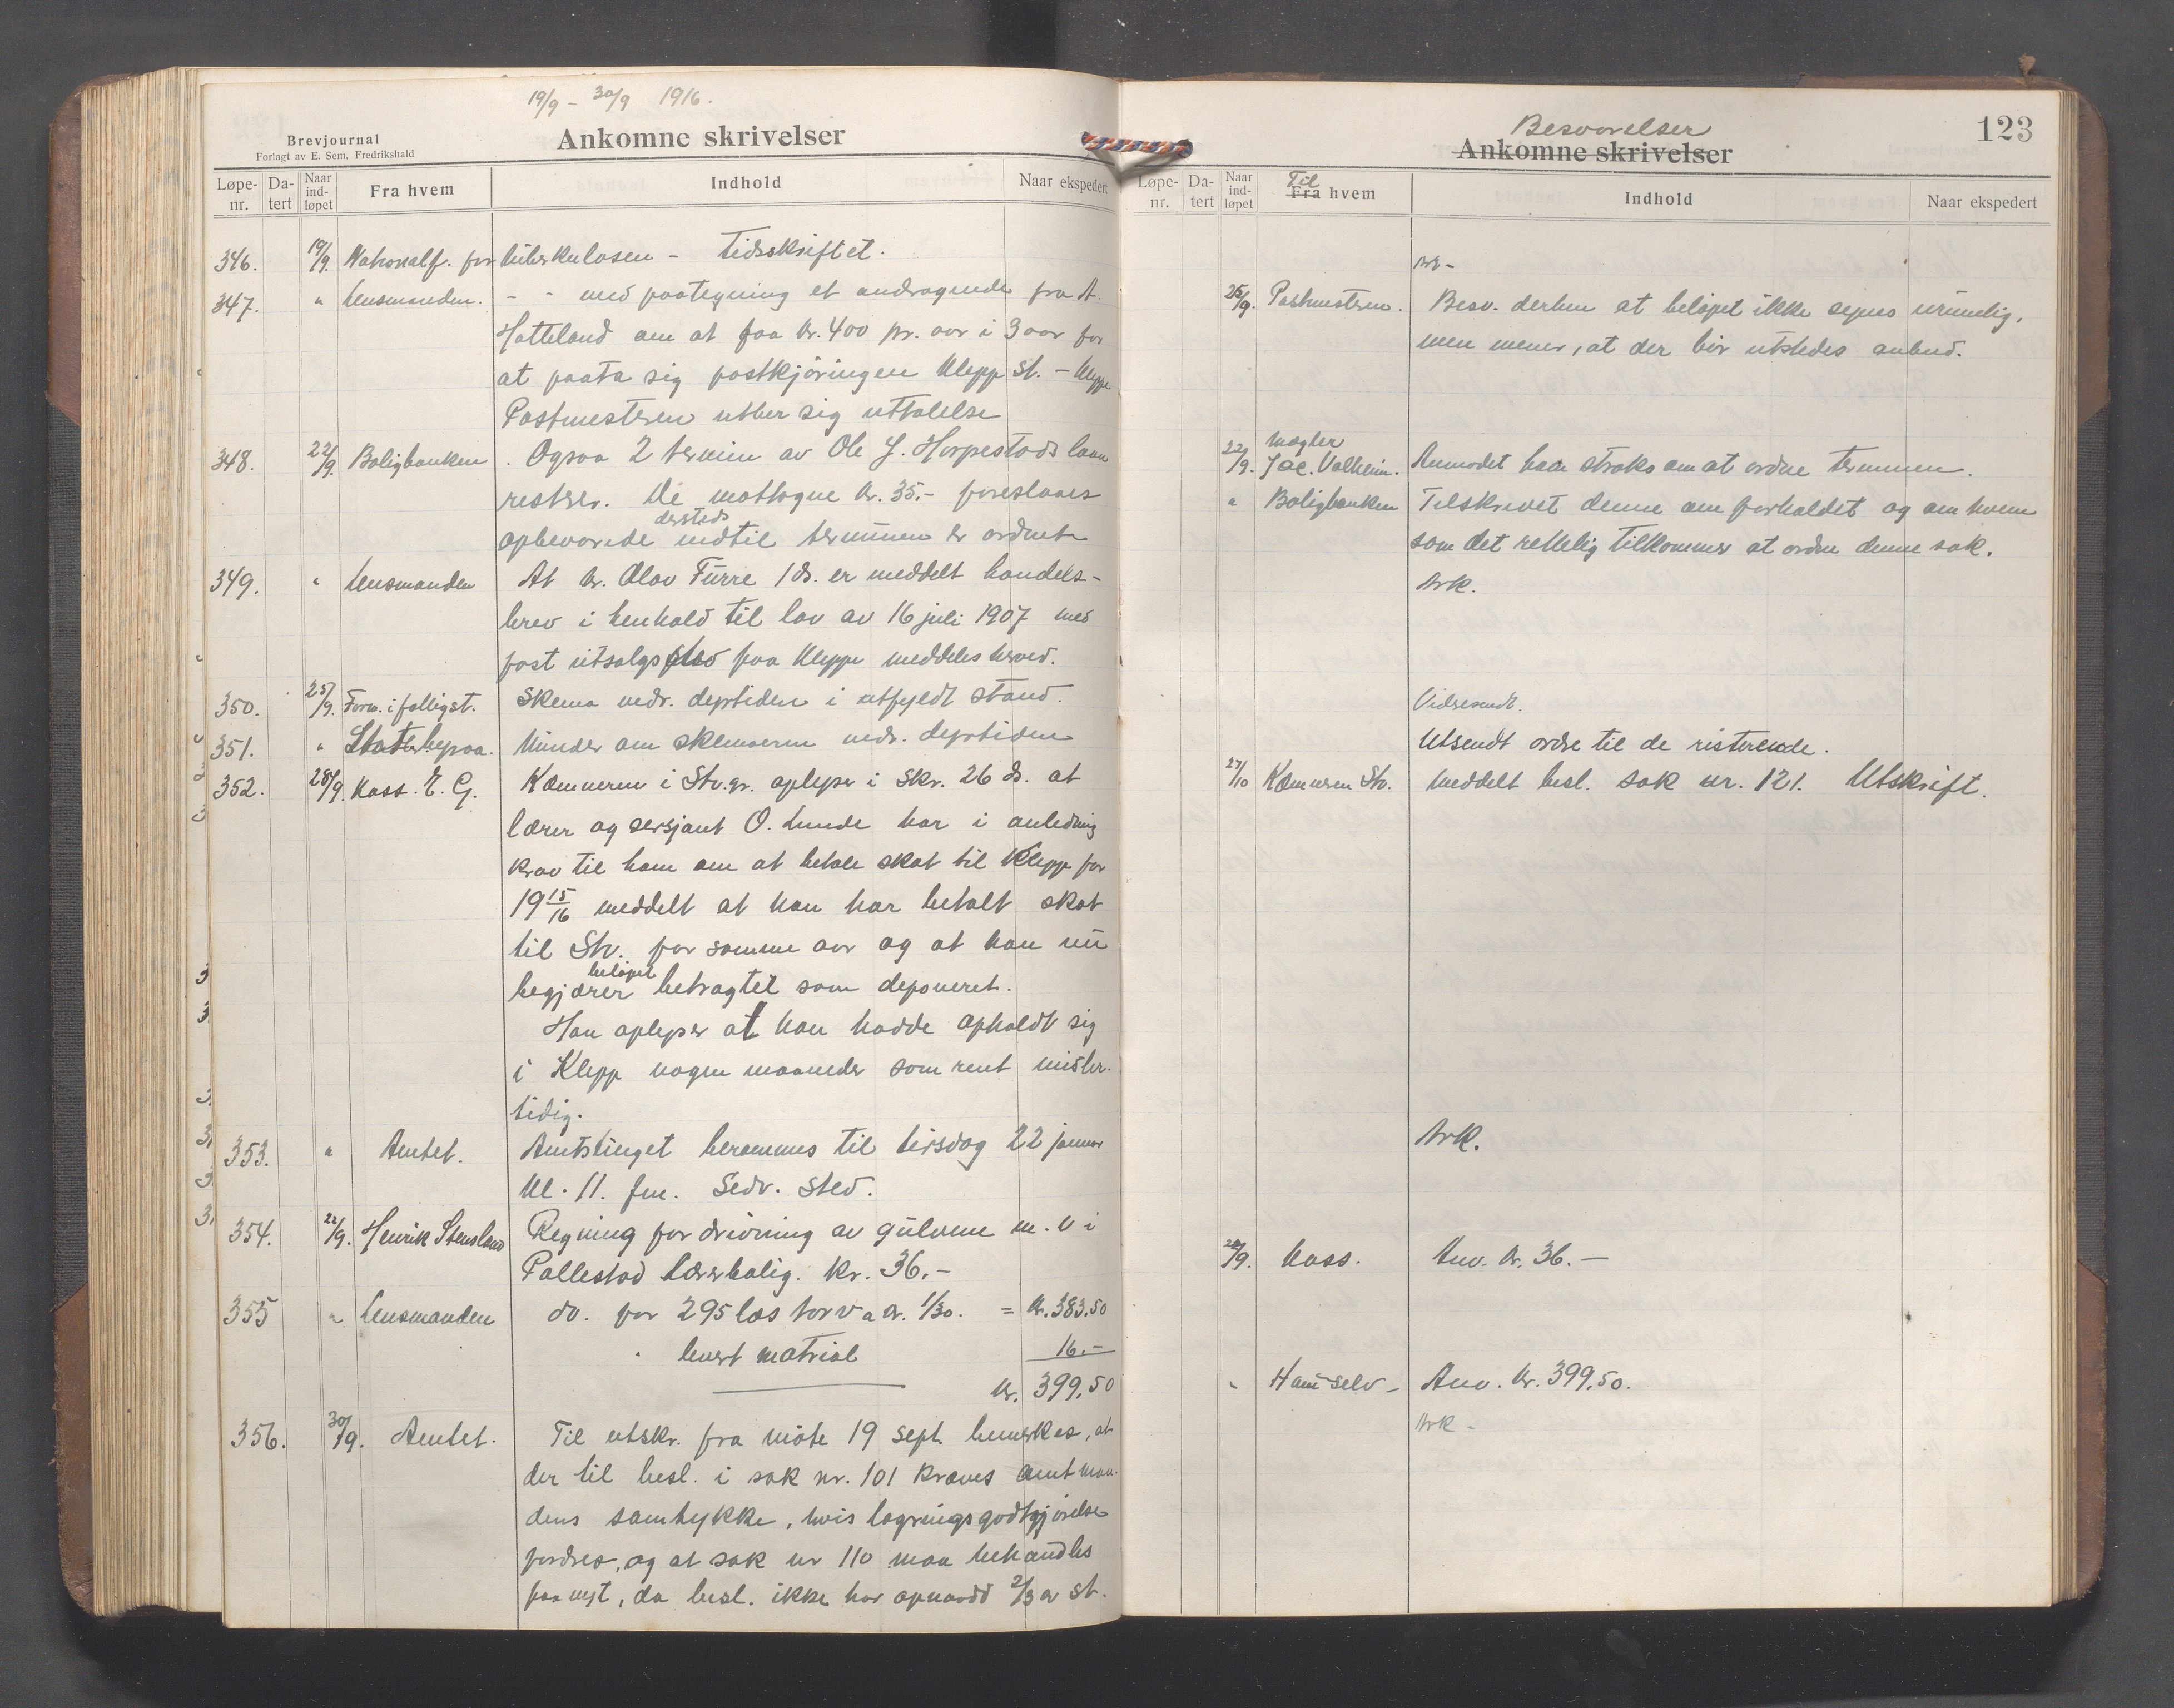 19/9 - 30/9 1916.
Brevjournal
Forlagt av E. Sem, Fredrikshald
Ankomne skrivelser
Løpe-nr. Da-tert Naar ind-løpet Fra hvem Indhold Naar ekspedert
346. 19/9. Nationalf. for tuberkulosen - Tidsskriftet.
347. " Lensmanden. - - med paategning et andragende fra A.
Hatteland om at faa kr. 400 pr. aar i 3 aar for
at paata sig postkjøringen Klepp st. - Kleppe
Postmesteren utber sig uttalelse
348. 22/9. Boligbanken. Ogsaa 2 termin av Ole J. Horpestads laan
resterer. De mottagne kr. 35.- foreslaaes
opbevarede dersteds indtil terminen er ordnet
349. " Lensmanden At hr. Olav Furre 1 ds. er meddelt handels-
brev i henhold til lov av 16 juli 1907 med
fast utsalgssted paa Kleppe meddeles herved.
350. 25/9. Form. i falligst. Skema vedr. dyrtiden i utfyldt stand.
351. " Minder om skemaerne vedr. dyrtiden
352. 28/9. Kass. E. G. Kæmneren i Stv.gr. oplyser i skr. 26 ds. at
lærer og sersjant O. Lunde har i anledning
krav til ham om at betale skat til Klepp for
19 15/16 meddelt at han har betalt skat
til Stv. for samme aar og at han nu
begjærer beløpet betragtet som deponeret.
Han oplyser at han hadde opholdt sig
i Klepp nogen maaneder som rent midler-
tidig.
353. " Amtet. Amtstinget berammes til tirsdag 22 januar
kl. 11. fm. Sedv. sted.
354. 22/9. Henrik Stensland Regning for drivning av gulvene m. v i
Pollestad lærerbolig. kr. 36.-
355 " Lensmanden do. for 295 læs torv a kr. 1/30. = kr. 383.50
" levert matrial 16.-
kr. 399.50
356. 30/9. Amtet. Til utskr. fra møte 19 sept. bemerkes, at
der til besl. i sak nr. 101 kræves amtman-
dens samtykke, hvis lagringsgodtgjørelse
fordres, og at sak nr 110 maa behandles
paa nyt, da besl. ikke har opnaadd 2/3 av st.
Besvarelser
Ankomne skrivelser
123
Løpe-nr. Da-tert Naar ind-løpet Til Fra hvem Indhold Naar ekspedert
Ark-
25/9. Postmesteren. Besv. derhen at beløpet ikke synes urimelig,
men mener, at der bør utstedes anbud.
22/9. Mægler Jac. Valheim. Anmodet ham straks om at ordne terminen.
" Boligbanken Tilskrevet denne om forholdet og om hvem
som det rettelig tilkommer at ordne denne sak.
Ark.
Vidresendt.
Utsendt ordre til de resterende.
27/10 Kæmneren Stv. Meddelt besl. sak nr. 121. Utskrift.
Ark.
28/9. Kass. Anv. kr. 36.-
" Ham selv- Anv. kr. 399,50.
Ark-